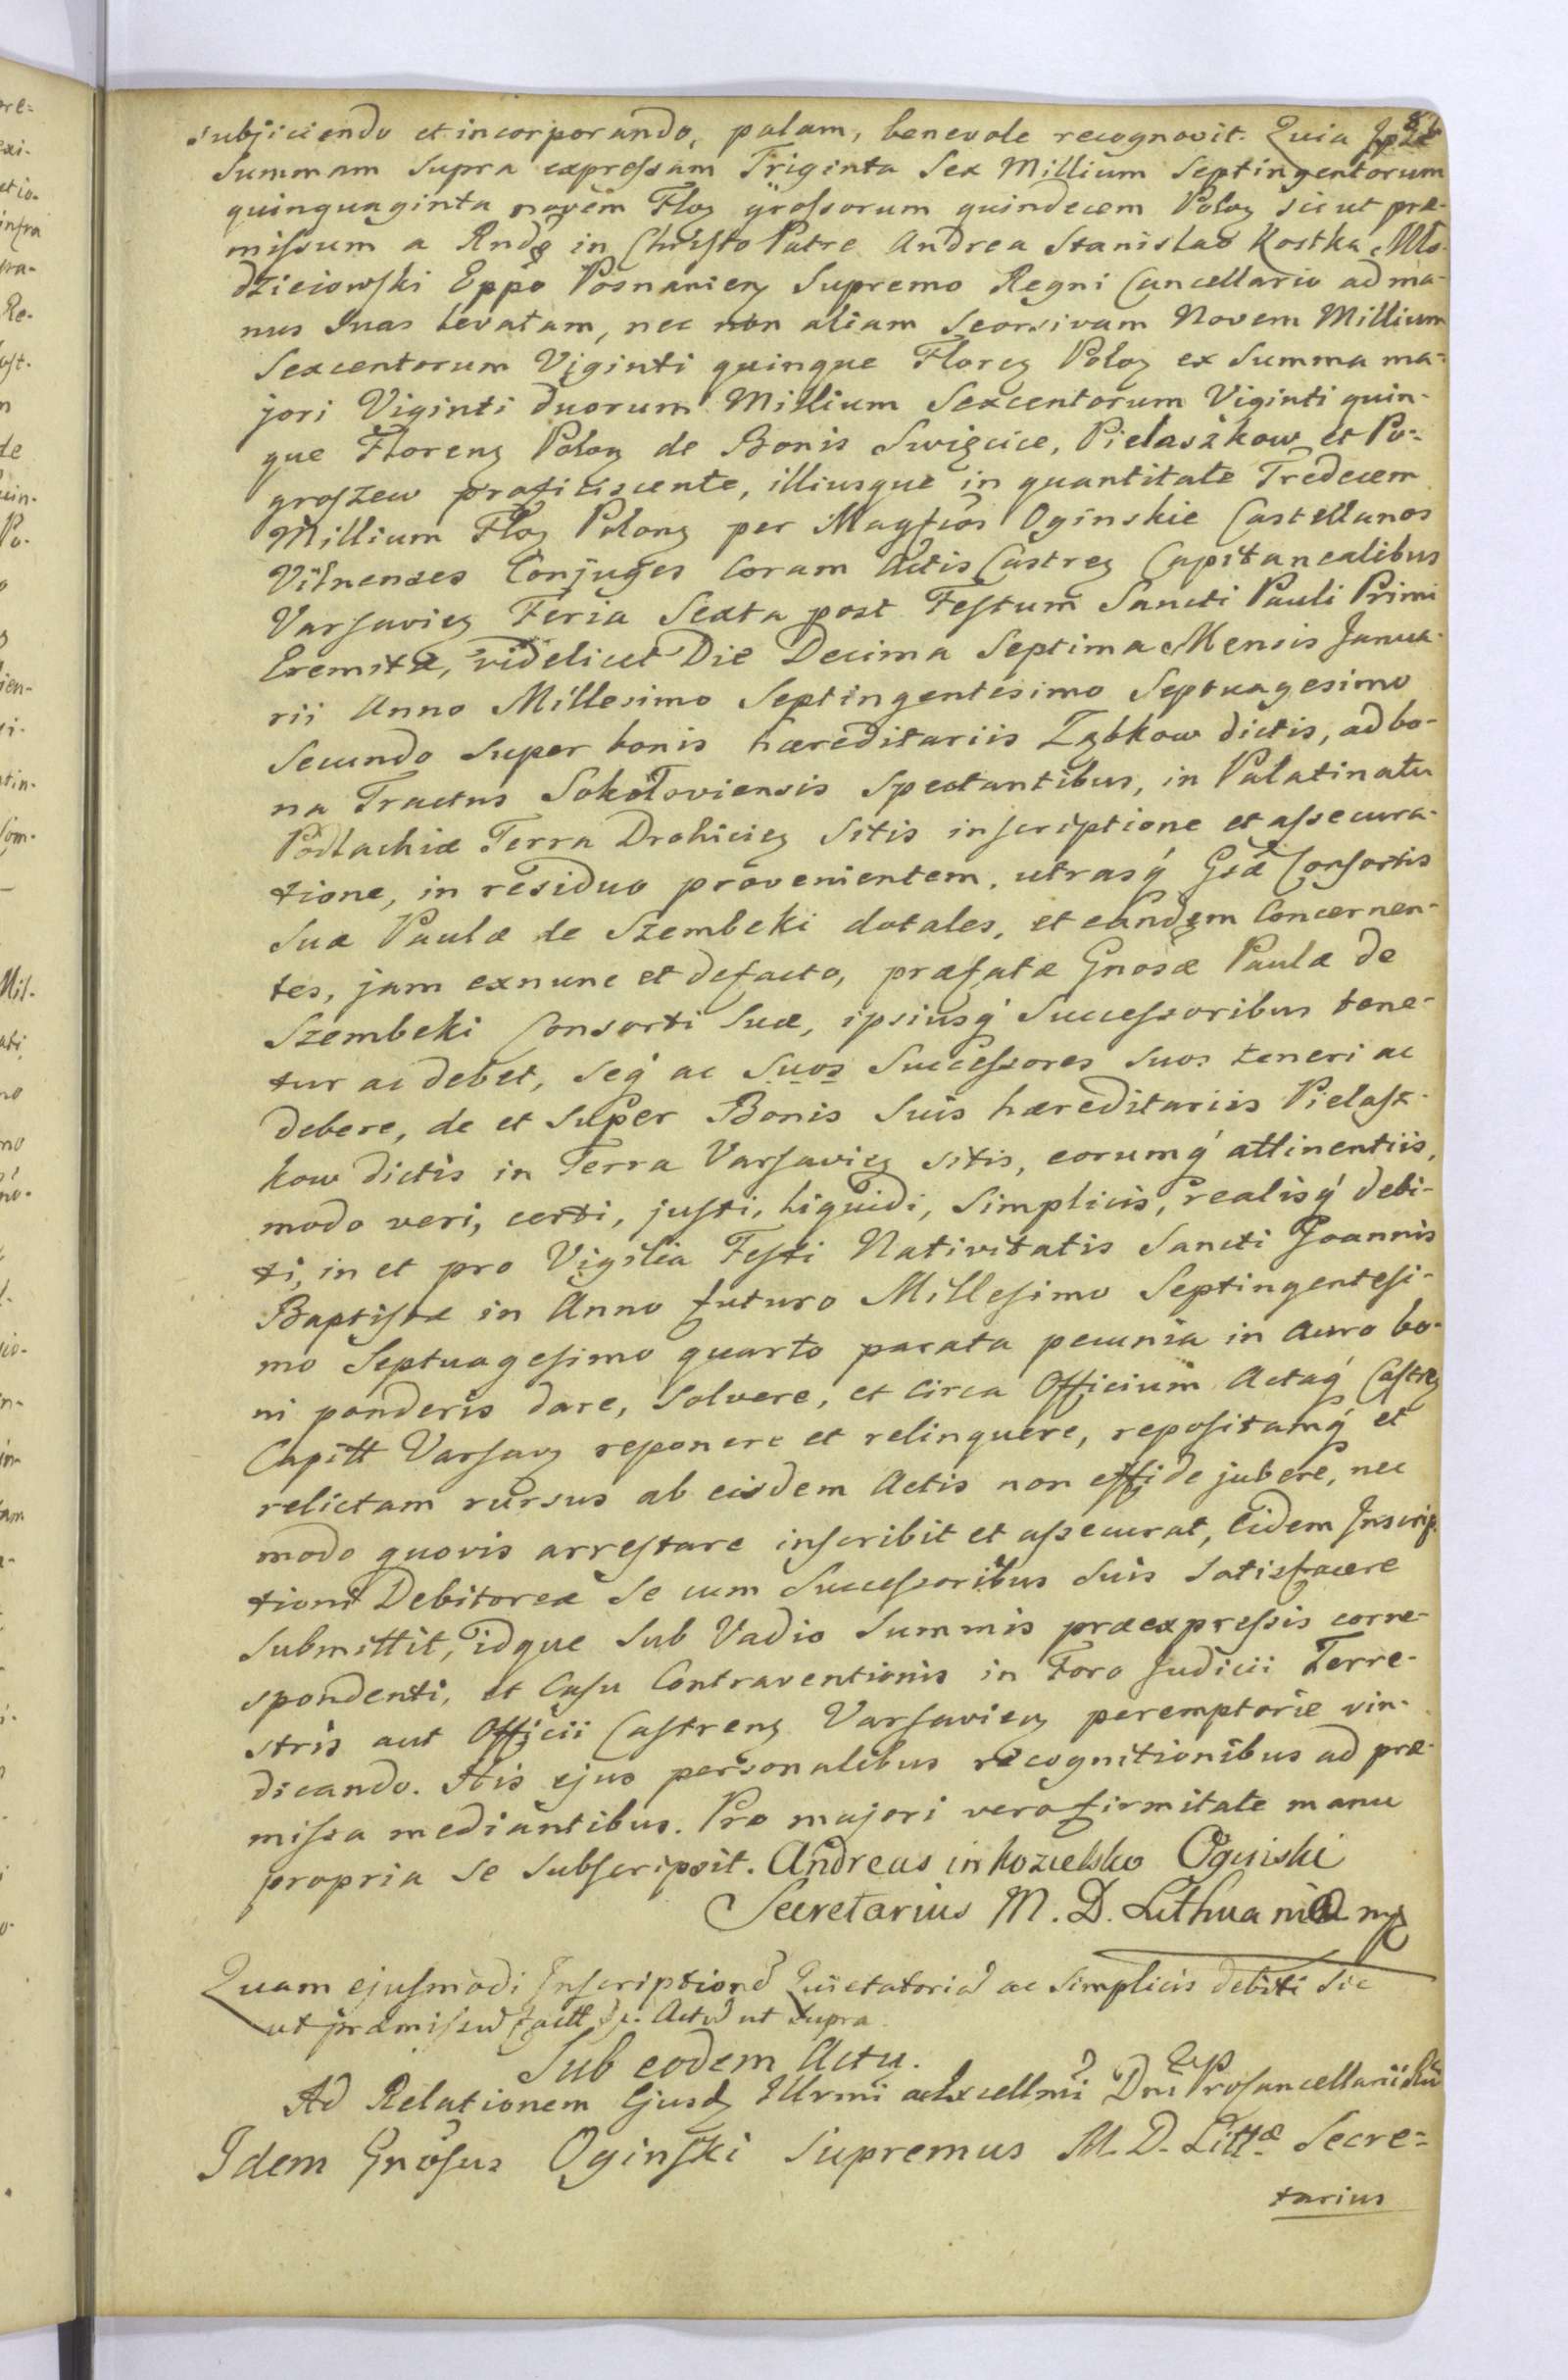 subjiciendo et incorporando, palam, benevole recognovit. Quia Ipse
Summam supra expressam Triginta Sex Millium Septingentorum
quinquaginta novem Floz grossorum quindecem Poloz sicut præ-
missum a Rndo in Christo Patre Andrea Stanislao Kostka Mło-
dzieiowski Eppo Posnanien Supremo Regni Cancellario ad ma-
nus suas levatam, nec non aliam seorsivam Novem Millium
Sexcentorum Viginti quinque Florez Poloz ex Summa ma-
jori Viginti duorum Millium Sexcentorum Viginti quin-
que Florenz Polon de Bonis Swięcice, Pielaszkow et Po-
groszew proficiscente, illiusque in quantitate Tredecem
Millium Floz Polonz per Magfcos Oginskie Castellanos
Vilnenses Conjuges Coram Actis Castrez Capitanealibus
Varsaviez Feria Sexta post Festum Sancti Pauli Primi
Eremitæ, videlicet Die Decima Septima Mensis Janua-
rii Anno Millesimo Septingentesimo Septuagesimo
Secundo super bonis hæreditariis Ząbkow dictis, ad bo-
na Tractus Sokołoviensis spectantibus, in Palatinatu
Podlachiæ Terra Drohiciez sitis inscriptione et assecura-
tione, in residuo provenientem, utrasq́ Gsæ Consortis
Suæ Paulæ de Szembeki dotales, et eandem Concernen-
tes, jam exnunc et defacto, præfatæ Gnosæ Paulæ de
Szembeki Consorti Suæ, ipsiusq́ Successoribus tene-
tur ac debet, seq́ ac suos Successores suos teneri ac
debere, de et super Bonis Suis hæreditariis Pielasz-
kow dictis in Terra Varsaviez sitis, eorumq́ attinentiis,
modo veri, certi, justi, liquidi, simplicis, realisq́ debi-
ti, in et pro Vigilia Festi Nativitatis Sancti Joannis
Baptistæ in Anno futuro Millesimo Septingentesi-
mo Septuagesimo quarto parata pecunia in auro bo-
ni ponderis dare, solvere, et circa Officium Actaq́ Castrez
Capitt Varsavz reponere et relinquere, repositamq́ et
relictam rursus ab eisdem Actis non effide jubere, nec
modo quovis arrestare inscribit et assecurat, Eidem Inscrip-
tioni Debitoreæ Se cum Successoribus Suis Satisfacere
Submittit, idque Sub Vadio Summis præexpressis corre-
spondenti, et Casu Contraventionis in Foro Judicii Terre-
stris aut Officii Castrenz Varsaviez peremptorie vin-
dicando. His ejus personalibus recognitionibus ad præ-
missa mediantibus. Pro majori vero firmitate manu
propria se subscripsit. Andreas in Kozielsko Oginski
Secretarius M. D. Lithuaniæ mp
Quam ejusmodi Inscriptione Quietatoria ac Simplicis debiti sic
ut præmissu factt &c. Actu ut supra
Sub eodem Actu.
Ad Relationem Ejusdz Illrmi ac Excellmi Dni Procancellarii
Idem Gnosus Oginski Supremus M. D. Littæ Secre-
tarius